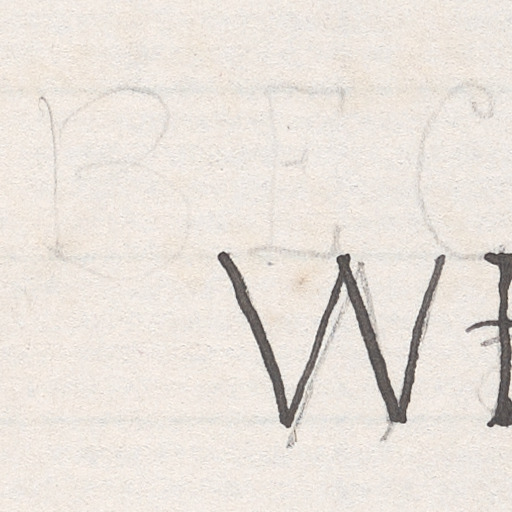 BEC
W